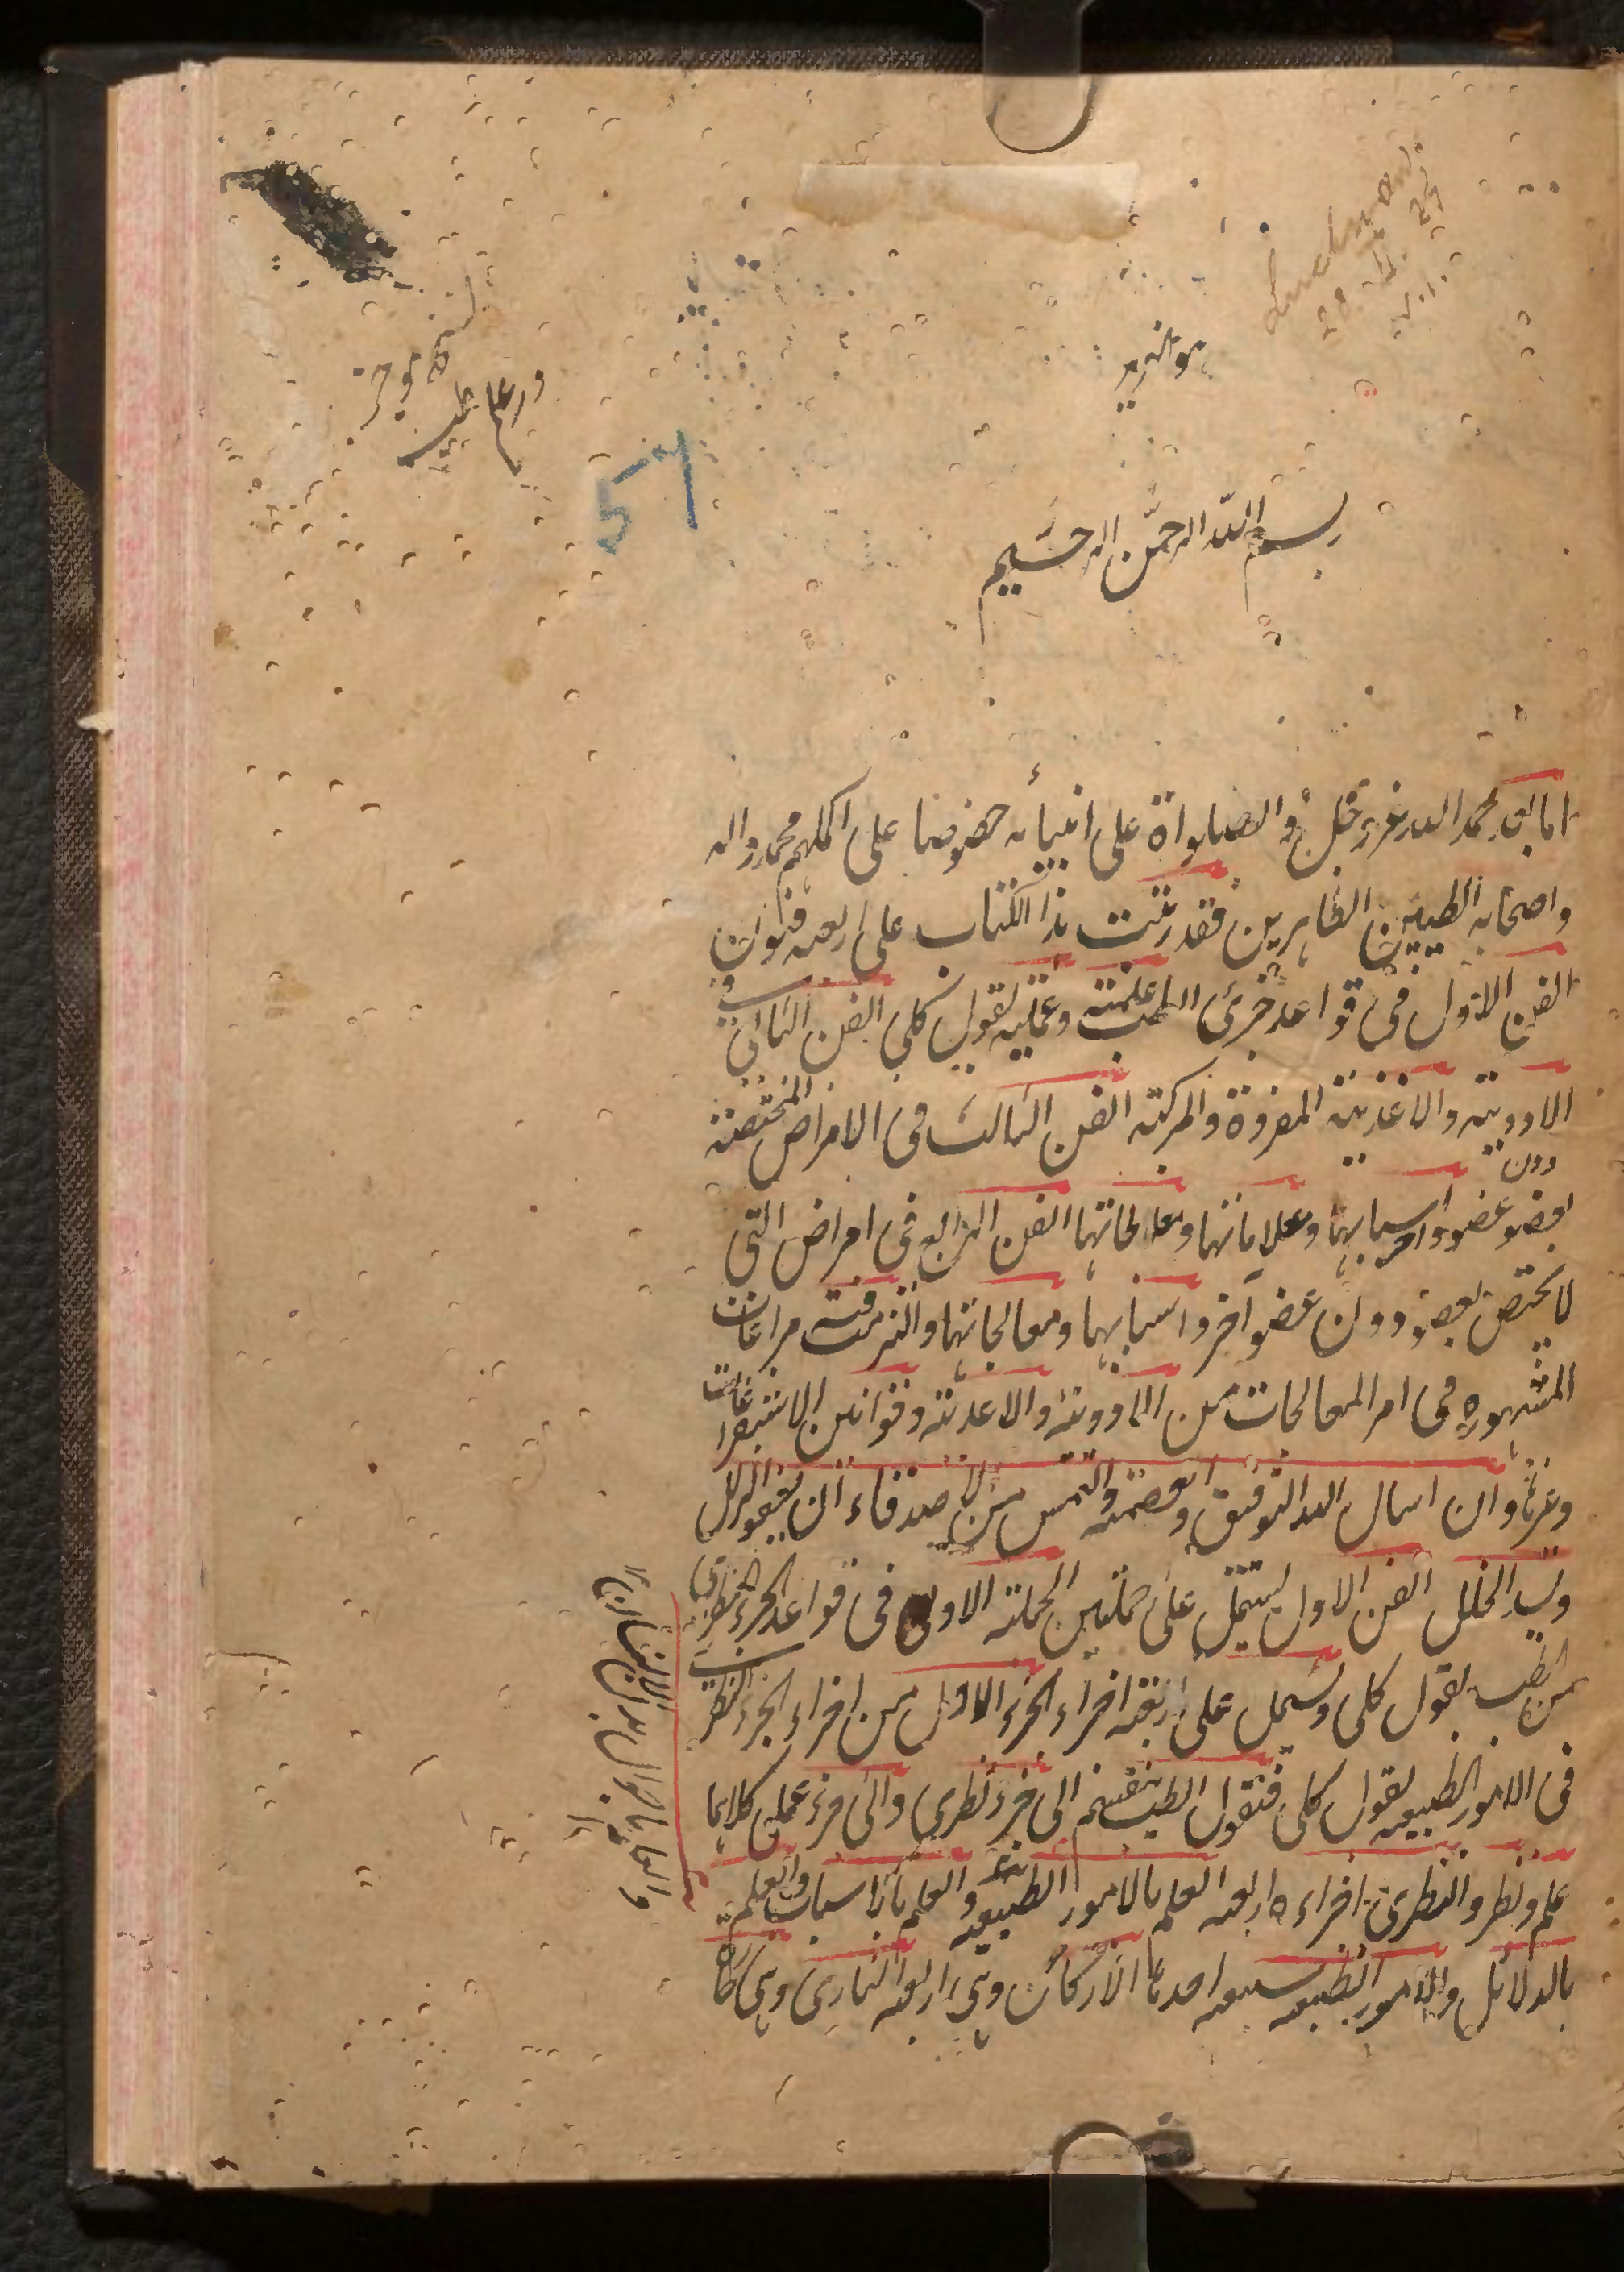 Lucknow
28. II. 27
V. I.
هو العزيز
نسخه موجز
در علم طب
57
بسم الله الرحمن الرحيم
اما بعد حمد الله عز و جل و الصلواة على انبيائه خصوصا على اكملهم محمد واله
واصحابه الطيبين الطاهرين فقد رتبت هذا الكتاب على اربعه فنون
الفن الاول فى قواعد جزئ الطب علميه وعمليه بقول كلى الفن الثانى فى
الادويته والاغذيته المفردة والمركبته الفن الثالث فى الامراض المختصته
بعضو عضو دون اخر واسبابها وعلاماتها ومعالجاتها الفن الرابع فى امراض التى
لا يختص بعضو دون عضو آخر واسبابها ومعالجاتها والتزمت فيه مراعات
المشهوره فى امر المعالجات من الادويته والاغذيته وقوانين الاستفراغات
وغيرها وان اسال الله التوفيق والعصمته والتمس من الاصدقاء ان يعفوا الزلل
ويسد الخلل الفن الاول يشتمل على جملتين الجملته الاولى فى قواعد الجزء النظرى
من الطب بقول كلى ويشتمل على اربعته اجزاء الجزء الاول من اجزاء الجزء النظرى
فى الامور الطبيعيه بقول كلى فنقول الطب ينقسم الى جزء نظرى والى جزء عملى كلاهما
علم ونظر والنظرى اجزاءه اربعه العلم بالامور الطبيعيه والعلم بالاسباب والعلم
بالدلائل والامور الطبيعيه سبعه احدها الاركان وهى اربعه النار وهى حارة